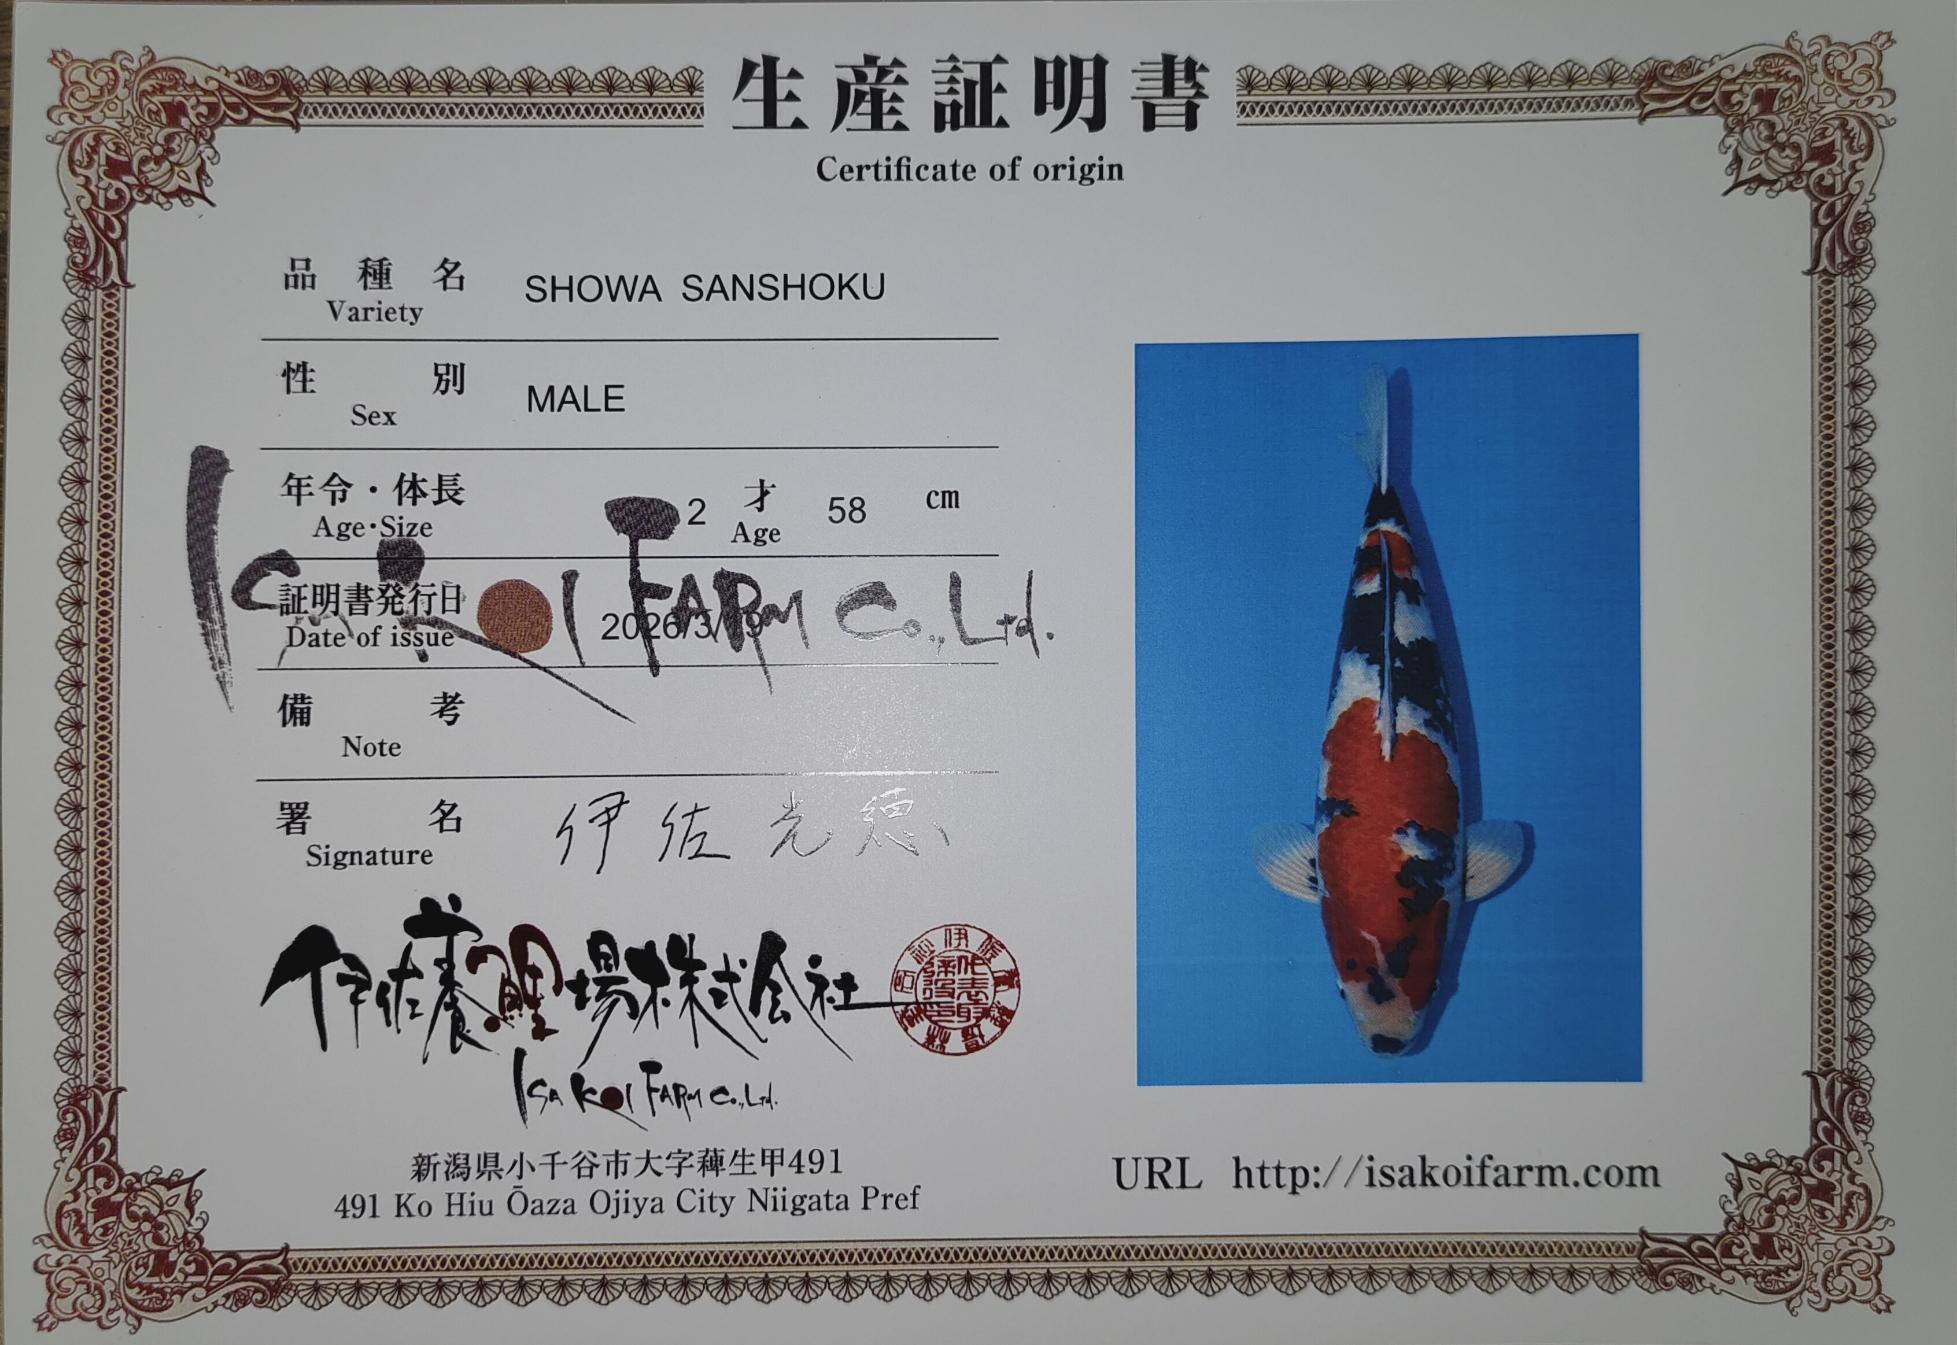 生産証明書
Certificate of origin
品種名 SHOWA SANSHOKU
Variety
性別 MALE
Sex
年令・体長 2 才 58 cm
Age・Size Age
ISA KOI FARM Co., Ltd.
証明書発行日
Date of issue 2026/3/19
備考
Note
署名 伊佐光徳
Signature
伊佐養鯉場株式会社
ISA KOI FARM Co., Ltd.
新潟県小千谷市大字薭生甲491
491 Ko Hiu Ōaza Ojiya City Niigata Pref
URL http://isakoifarm.com